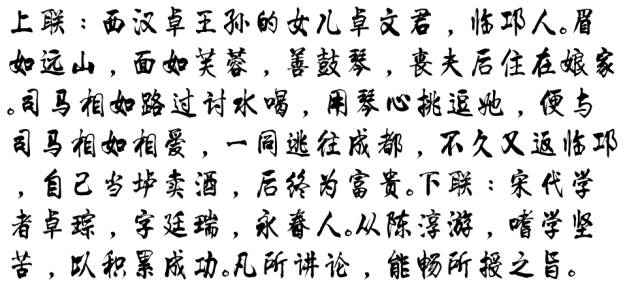 上联：西汉卓王孙的女儿卓文君，临邛人。眉
如远山，面如芙蓉，善鼓琴，丧夫后住在娘家
。司马相如路过讨水喝，用琴心挑逗她，便与
司马相如相爱，一同逃往成都，不久又返临邛
，自己当垆卖酒，后终为富贵。下联：宋代学
者卓琮，字廷瑞，永春人。从陈淳游，嗜学坚
苦，以积累成功。凡所讲论，能畅所授之旨。